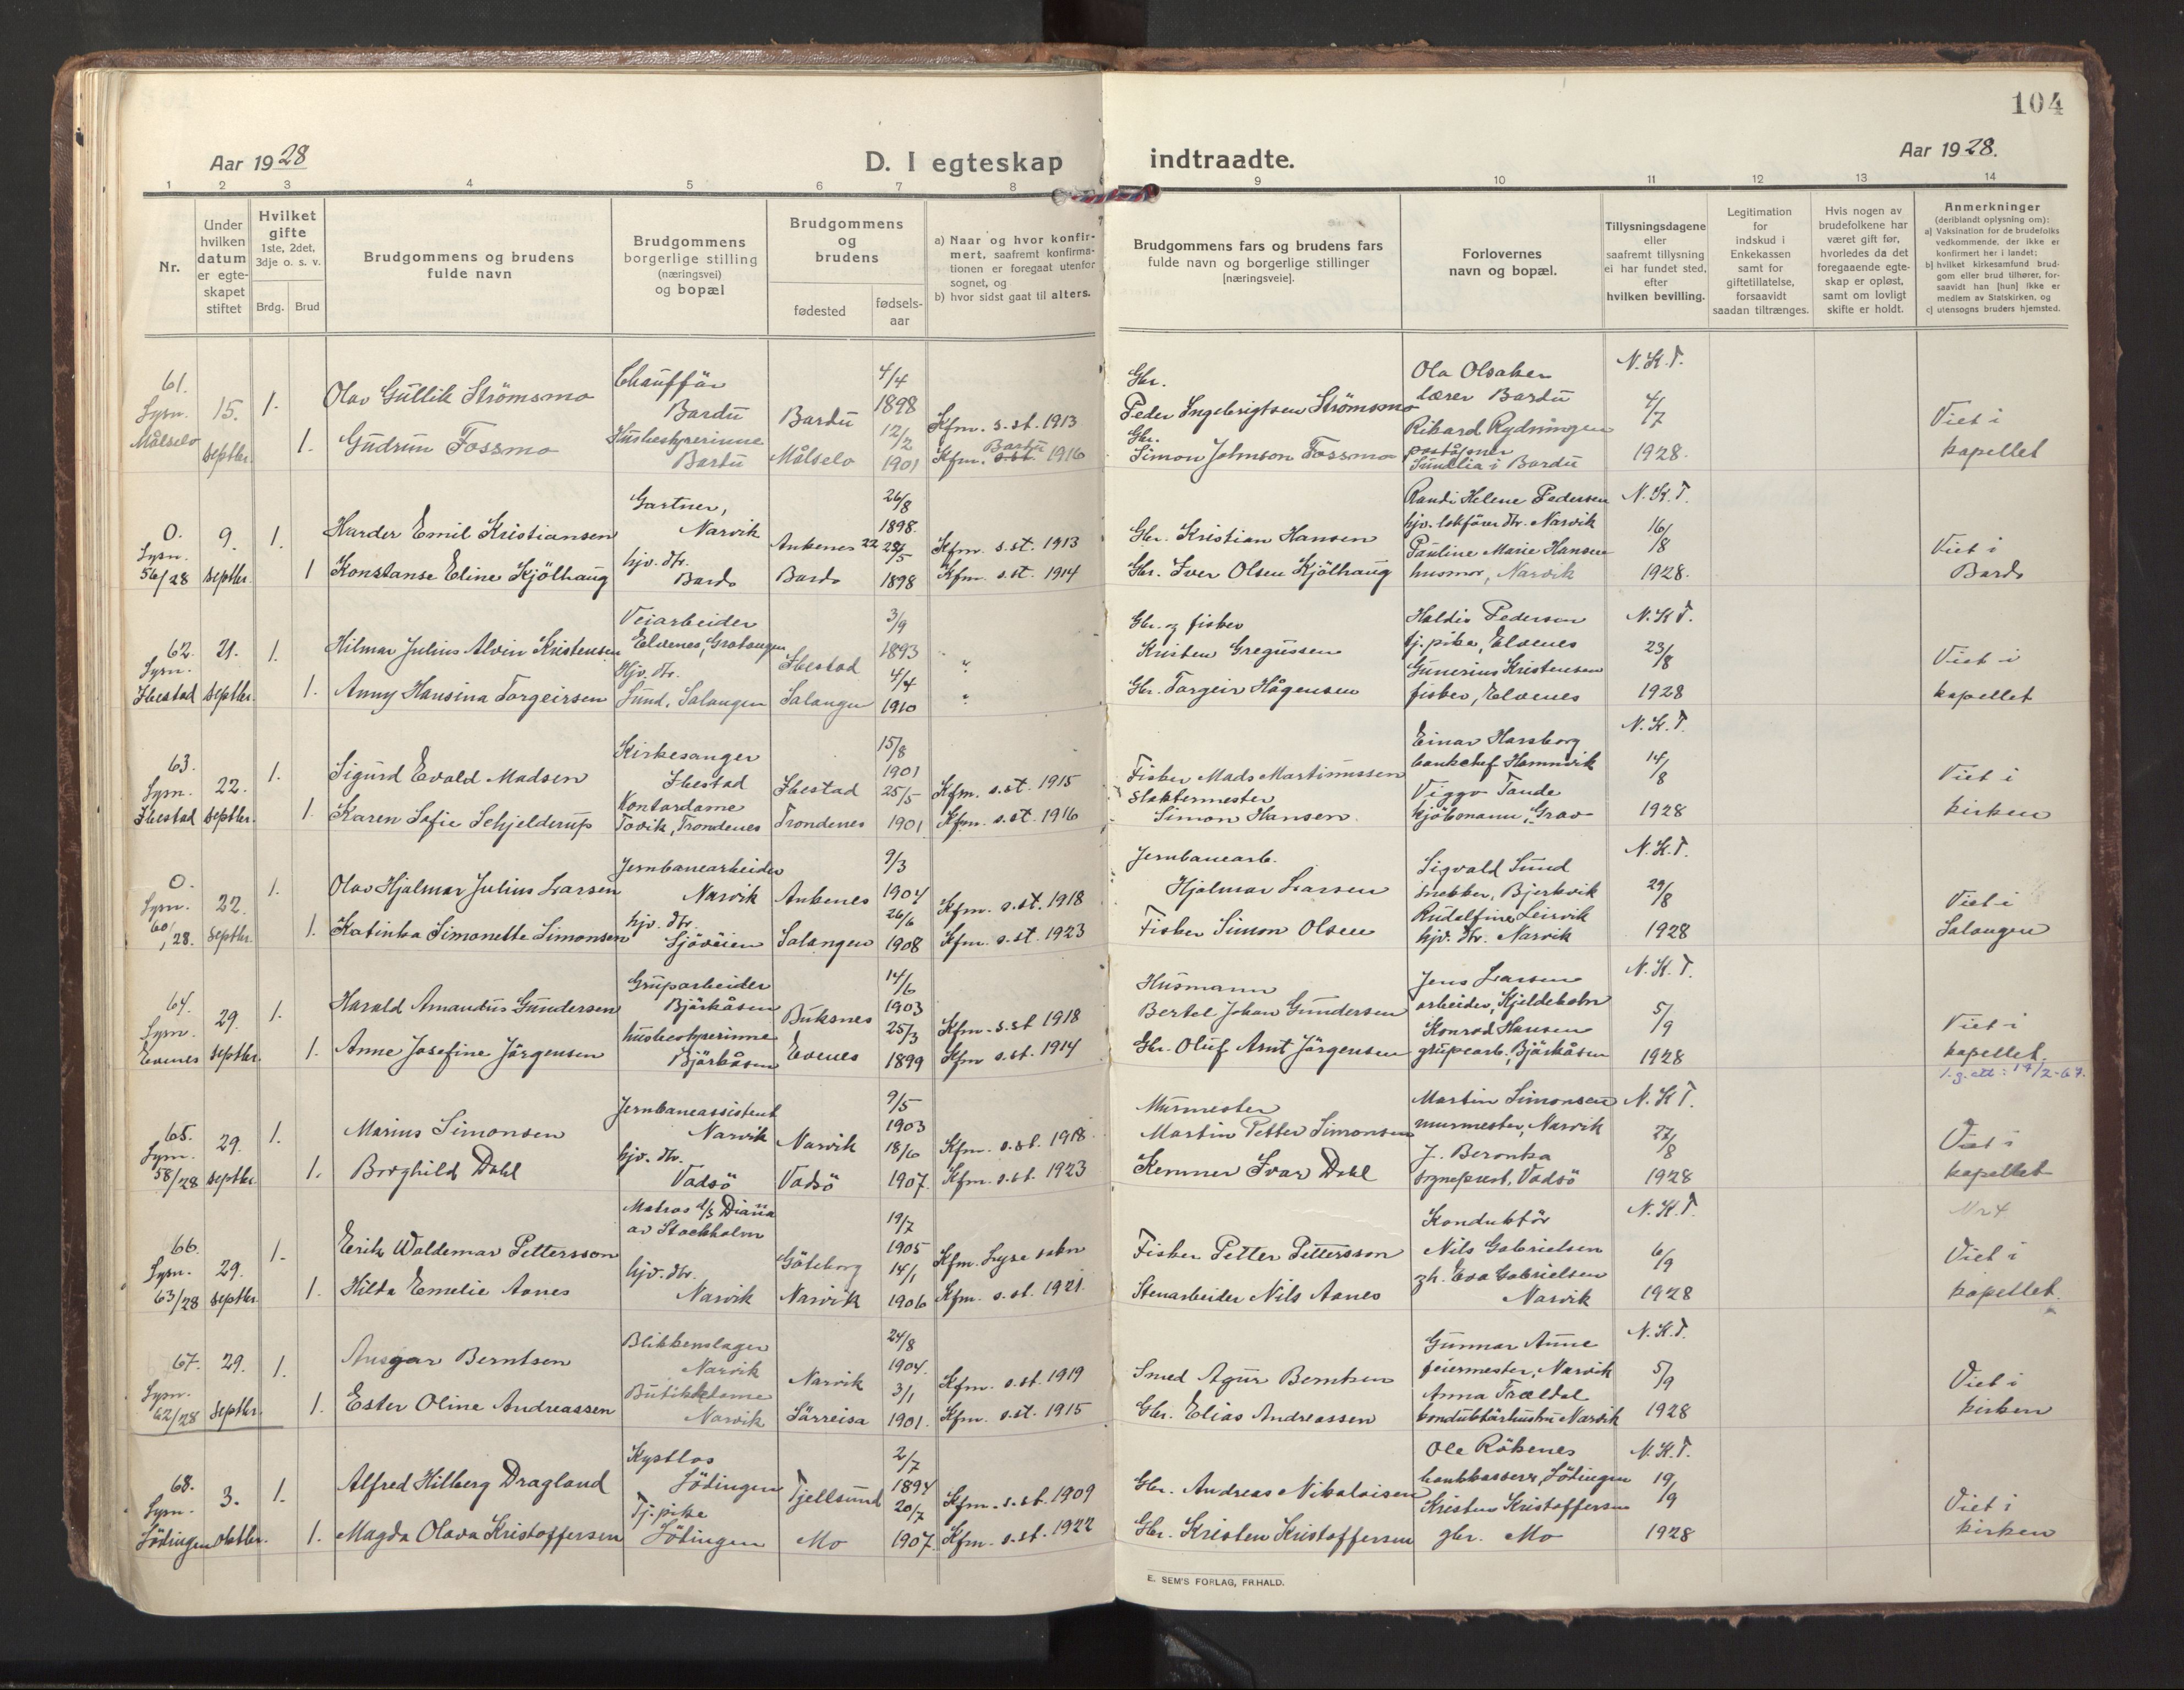 104
Aar 1928
D. I egteskap
indtraadte.
Aar 1928.
1 2 3 4 5 6 7 8 9 10 11 12 13 14
Nr.
Under hvilken datum er egte-skapet stiftet
Hvilket gifte
1ste, 2det, 3dje o. s. v.
Brdg. Brud
Brudgommens og brudens
fulde navn
Brudgommens
borgerlige stilling
(næringsvei)
og bopæl
Brudgommens
og
brudens
fødested
fødsels-
aar
a) Naar og hvor konfir-
mert, saafremt konfirma-
tionen er foregaat utenfor
sognet, og
b) hvor sidst gaat til alters.
Brudgommens fars og brudens fars
fulde navn og borgerlige stillinger
[næringsveie].
Forlovernes
navn og bopæl.
Tillysningsdagene
eller
saafremt tillysning
ei har fundet sted,
efter
hvilken bevilling.
Legitimation
for
indskud i
Enkekassen
samt for
giftetillatelse,
forsaavidt
saadan tiltrænges.
Hvis nogen av
brudefolkene har
været gift før,
hvorledes da det
foregaaende egte-
skap er opløst,
samt om lovligt
skifte er holdt.
Anmerkninger
(deriblandt oplysning om):
a) Vaksination for de brudefolks
vedkommende, der ikke er
konfirmert her i landet;
b) hvilket kirkesamfund brud-
gom eller brud tilhører, for-
saavidt han [hun] ikke er
medlem av Statskirken, og
c) utensogns bruders hjemsted.
61.
Lysn.
Målselv
15.
septbr.
1.
1.
Olav Gullik Strömsmo
Gudrun Fossmo
Chaufför
Bardu
Husbestyrerinne
Bardu
Bardu
Målselv
4/4
1898
12/2
1901
Kfm. s. st. 1913
Kfm. s. st. Bardu 1916
Gbr.
Peder Ingebrigtsen Strömsmo
Gbr.
Simon Johnson Fossmo
Ola Olsaker
lærer Bardu
Rikard Rydningen
poståpner
Sundlia i Bardu
N. K. T.
4/7
1928.
Viet i
kapellet
0.
Lysn.
56/28
9.
septbr.
1.
1
Harder Emil Kristiansen
Konstanse Eline Kjölhaug
Gartner,
Narvik
hjv. dtr.
Bardo
Ankenes
Bardo
26/8
1898.
22
/5
1898
Kfm. s. st. 1913
Kfm. s. st. 1914
Gbr. Kristian Hansen
Gbr. Iver Olsen Kjölhaug
Randi Helene Pedersen
hjv. lokförer dtr. Narvik
Pauline Marie Hansen
husmor, Narvik
N. K. T.
16/8
1928.
Viet i
Bardo
62.
Lysn.
Ibestad
21.
septbr.
1.
1.
Hilmar Julius Alvin Kristensen
Anny Hansina Torgeirsen
Veiarbeider
Elvenes, Gratangen
Hjv. dtr.
Sund, Salangen
Ibestad
Salangen
3/9
1893
4/4
1910
"
"
Gbr. og fisker
Kristen Gregussen
Gbr. Torgeir Hågensen
Haldis Pedersen
tj. pike, Elvenes
Gunerius Kristensen
fisker, Elvenes
N. K. T.
23/8
1928
Viet i
kapellet
63.
Lysn.
Ibestad
22.
septbr.
1.
1.
Sigurd Evald Madsen
Karen Sofie Schjelderup
Kirkesanger
Ibestad
Kontordame
Tovik, Trondenes
Ibestad
Trondenes
15/8
1901
25/5
1901
Kfm. s. st. 1915
Kfm. s. st. 1916
Fisker Mads Martinussen
Slaktermester
Simon Hansen
Einar Harsborg
bankchef Hamnvik
Viggo Tande
kjöbmann, Grav
N. K. T.
14/8
1928
Viet i
kirken
0.
Lysn.
60/28.
22.
septbr.
1.
1.
Olav Hjalmar Julius Larsen
Katinka Simonette Simonsen
Jernbanearbeider
Narvik
hjv. dtr.
Sjöveien
Ankenes
Salangen
9/3
1904
26/6
1908
Kfm. s. st. 1918
Kfm. s. st. 1923
Jernbanearb.
Hjalmar Larsen
Fisker Simon Olsen
Sigvald Sund
snekker, Bjerkvik
Rudolfine Leirvik
hjv. dtr. Narvik
N. K. T.
29/8
1928
Viet i
Salangen
64.
Lysn.
Evenes
29.
septbr.
1.
1.
Harald Amandus Gundersen
Anne Josefine Jörgensen
Gruparbeider
Bjärkåsen
husbestyrerinne
Bjärkåsen
Buksnes
Evenes
14/6
1903
25/3
1899
Kfm. s. st 1918
Kfm s. st. 1914
Husmann
Bertel Johan Gundersen
Gbr. Oluf Arnt Jörgensen
Jens Larsen
arbeider, Kjeldebotn
Konrad Hansen
grupearb. Bjärkåsen
N. K. T.
5/9
1928
Viet i
kapellet.
l. g. att: 17/2-67.
65.
Lysn.
58/28
29.
septbr.
1.
1.
Marius Simonsen
Borghild Dahl
Jernbaneassistent
Narvik
hjv. dtr.
Vadsö
Narvik
Vadsö
9/5
1903
18/6
1907.
Kfm. s. st. 1918.
Kfm. s. st. 1923
Murmester
Martin Petter Simonsen
Kemner Ivar Dahl
Martin Simonsen
murmester, Narvik
J. Beronka
sogneprest, Vadsö
N. K T.
27/8
1928
Viet i
kapellet
66.
Lysn.
63/28
29.
septbr.
1.
1.
Erik Waldemar Pettersson
Hilda Emelie Aanes
Matros d/s Diana
av Stockholm
hjv. dtr.
Narvik
Göteborg
Narvik
19/7
1905
14/1
1906
Kfm. Lyse sokn
Kfm. s. st. 1921.
Fisker Petter Pettersson
Stenarbeider Nils Aanes
Konduktör
Nils Gabrielsen
gh. Eva Gabrielsen
Narvik
N. K. T.
6/9
1928
Nr 4
Viet i
kapellet.
67.
Lysn.
62/28
29.
septbr.
1.
1.
Ansgar Berntsen
Ester Oline Andreassen
Blikkenslager
Narvik
Butikkdame
Narvik
Narvik
Sörreisa
24/8
1904.
3/1
1901.
Kfm. s. st. 1919
Kfm. s. st. 1915
Smed Agur Berntsen
Gbr. Elias Andreassen
Gunnar Anne
feiermester, Narvik
Anna Trældal
konduktörhustru Narvik
N. K. T.
5/9
1928
Viet i
kirken
68.
Lysn.
Lödingen
3.
oktbr.
1.
1.
Alfred Hilberg Dragland
Magda Olava Kristoffersen
Kystlos
Lödingen
Tj. pike
Lödingen
Tjellsund
Mo
2/7
1894
20/7
1907.
Kfm. s. st. 1909
Kfm. s. st. 1922
Gbr. Andreas Nikolaisen
Gbr. Kristen Kristoffersen
Ole Rökenes
bankkasserer, Lödingen
Kristen Kristoffersen
gbr. Mo
N. K. T.
19/9
1928
Viet i
kirken
E. SEM'S FORLAG, FR.HALD.